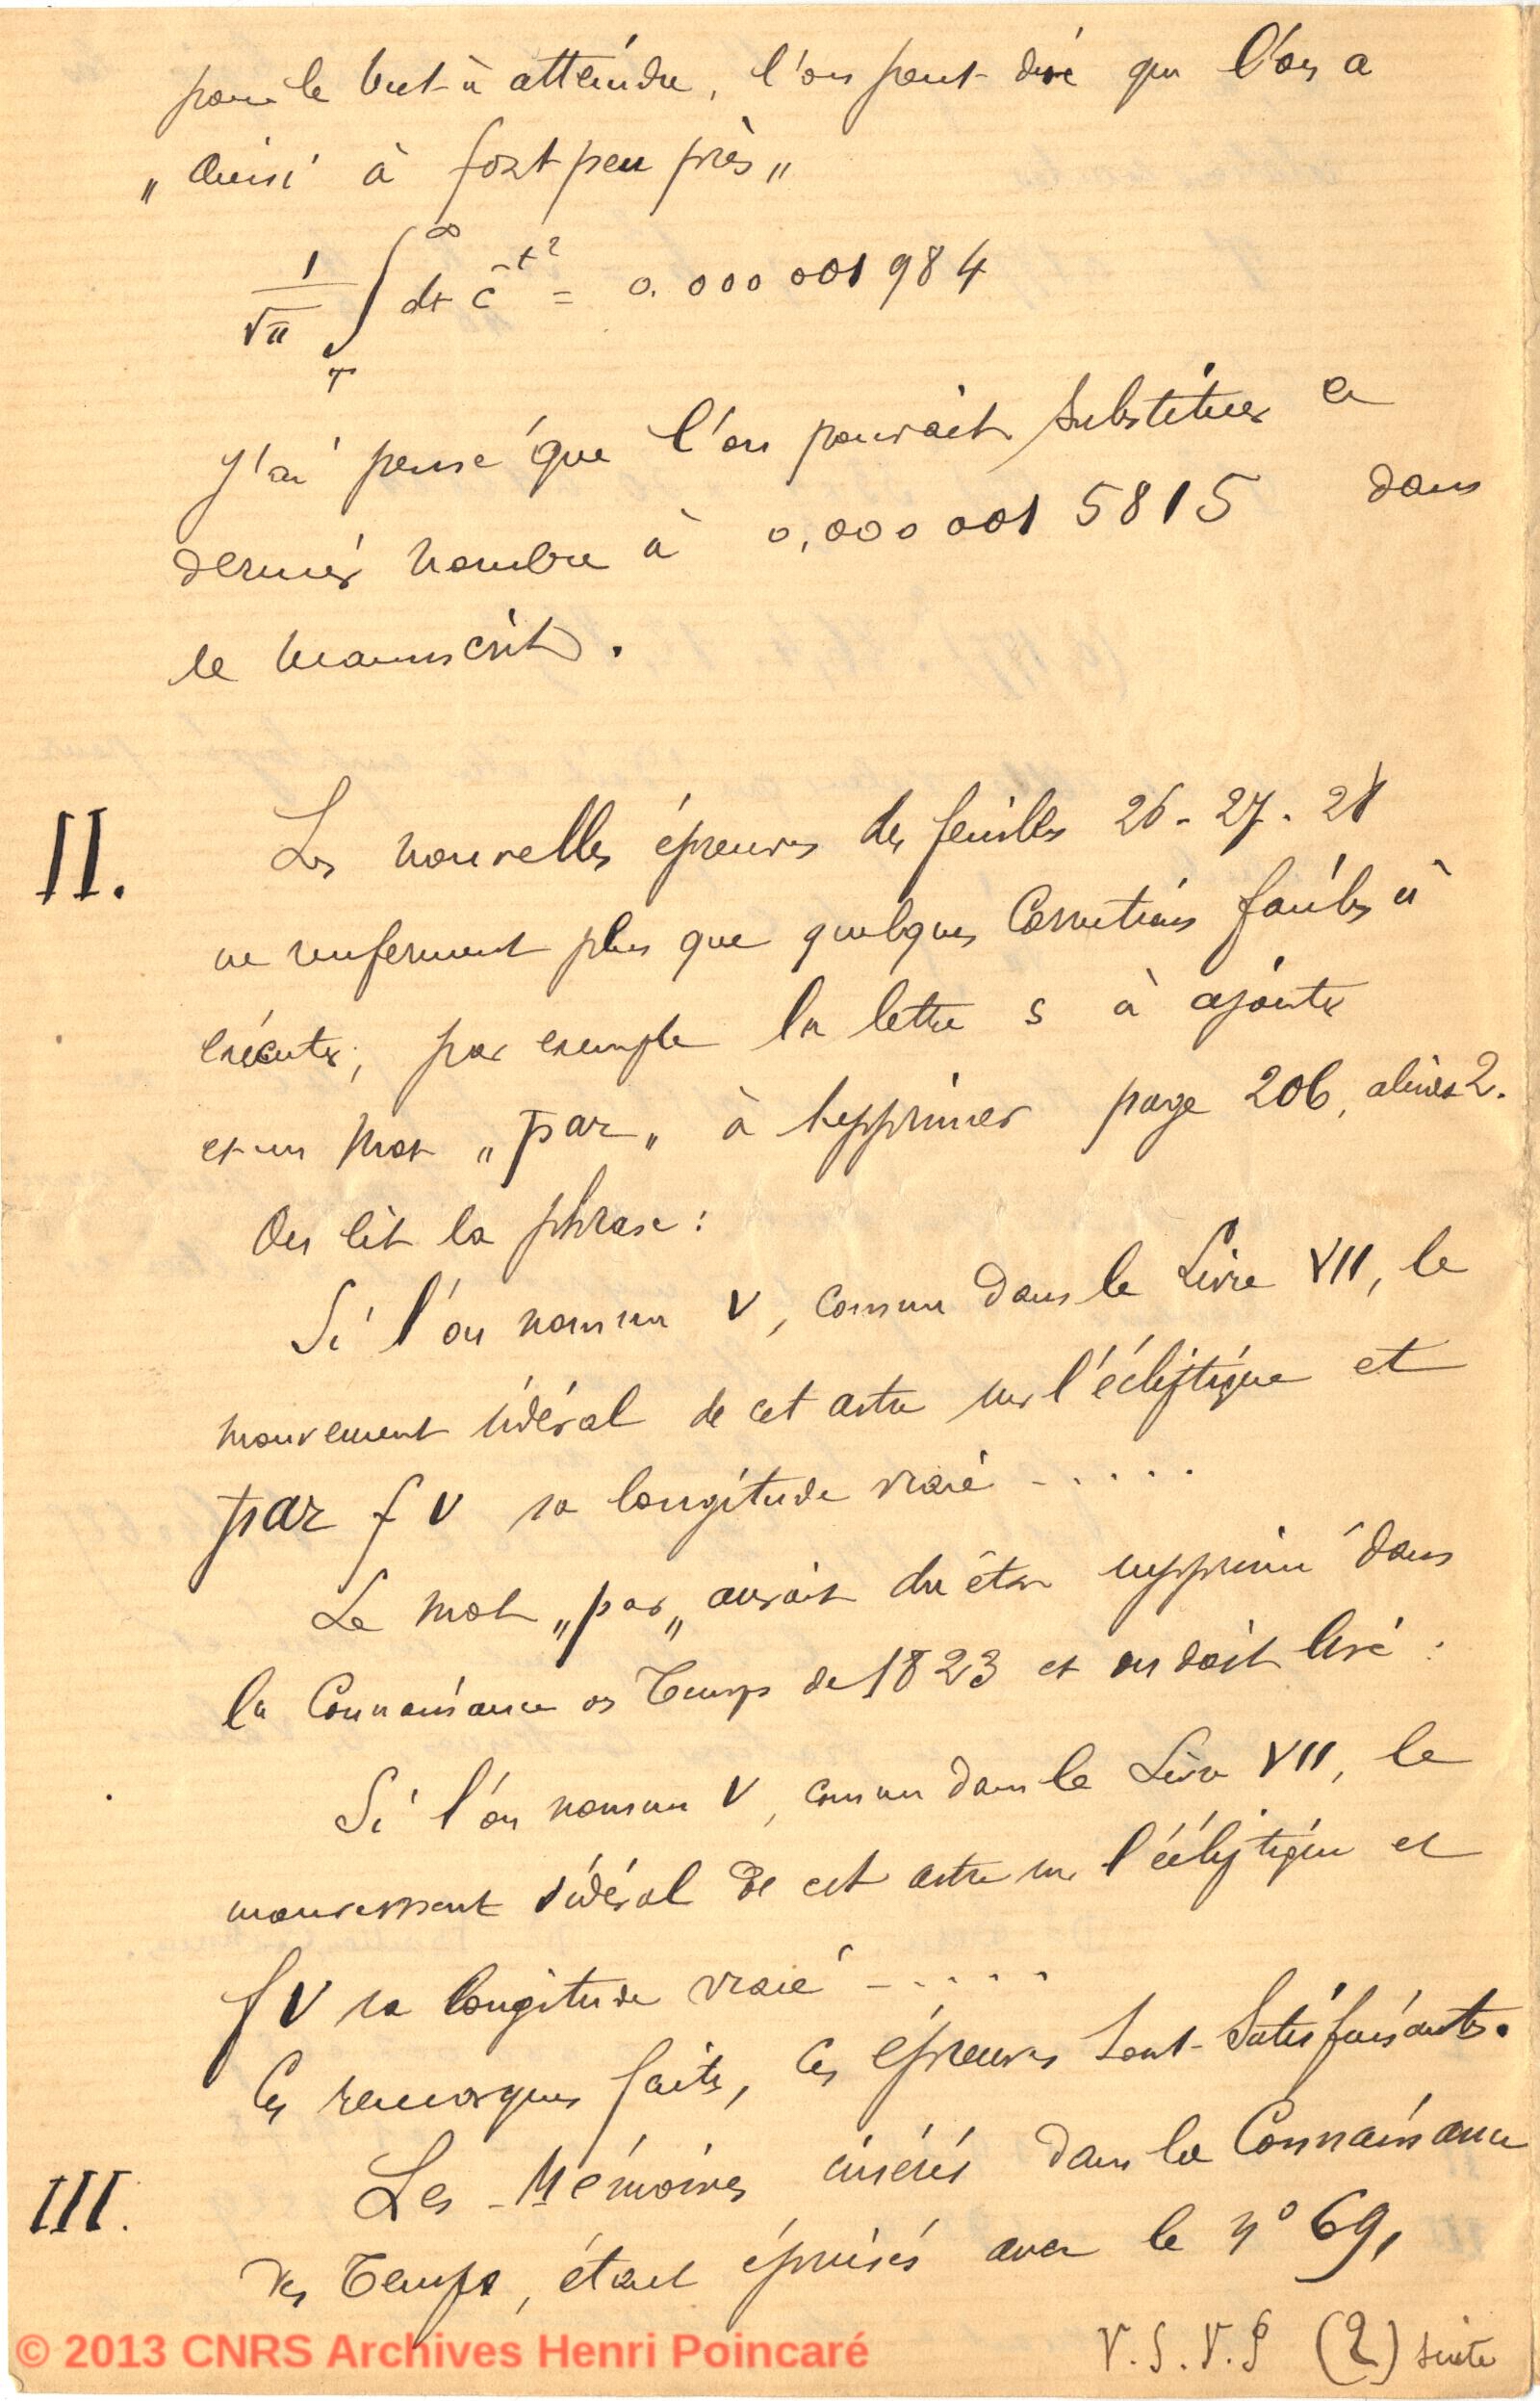 pour le but à atteindre, l'on peut dire que l'on a
„ ainsi à fort peu près „
1/√π ∫_T^∞ dt c^{-t²} = 0.000 001 984
J'ai pensé que l'on pourrait substituer ce
dernier nombre à 0,000 001 5815 dans
le manuscrit.
II. Les nouvelles épreuves des feuilles 26-27-28
ne renferment plus que quelques Corrections faciles à
exécuter, par exemple la lettre s à ajouter
et un mot „ par „ à supprimer page 206, alinéa 2.
On lit la phrase :
Si l'on nomme V, comme dans le Livre VII, le
mouvement sidéral de cet astre sur l'écliptique et
par fV sa longitude vraie - . . . .
Le mot „ par „ aurait du être supprimé dans
la Connaissance des Temps de 1823 et on doit lire :
Si l'on nomme V, comme dans le Livre VII, le
mouvement sidéral de cet astre sur l'écliptique et
fV sa longitude vraie - . . . .
Ces remarques faites, ces épreuves sont satisfaisantes.
III. Les Mémoires insérés dans la Connaissance
des Temps, étant épuisés avec le nº 69,
V.S.V.P (2) suite
© 2013 CNRS Archives Henri Poincaré